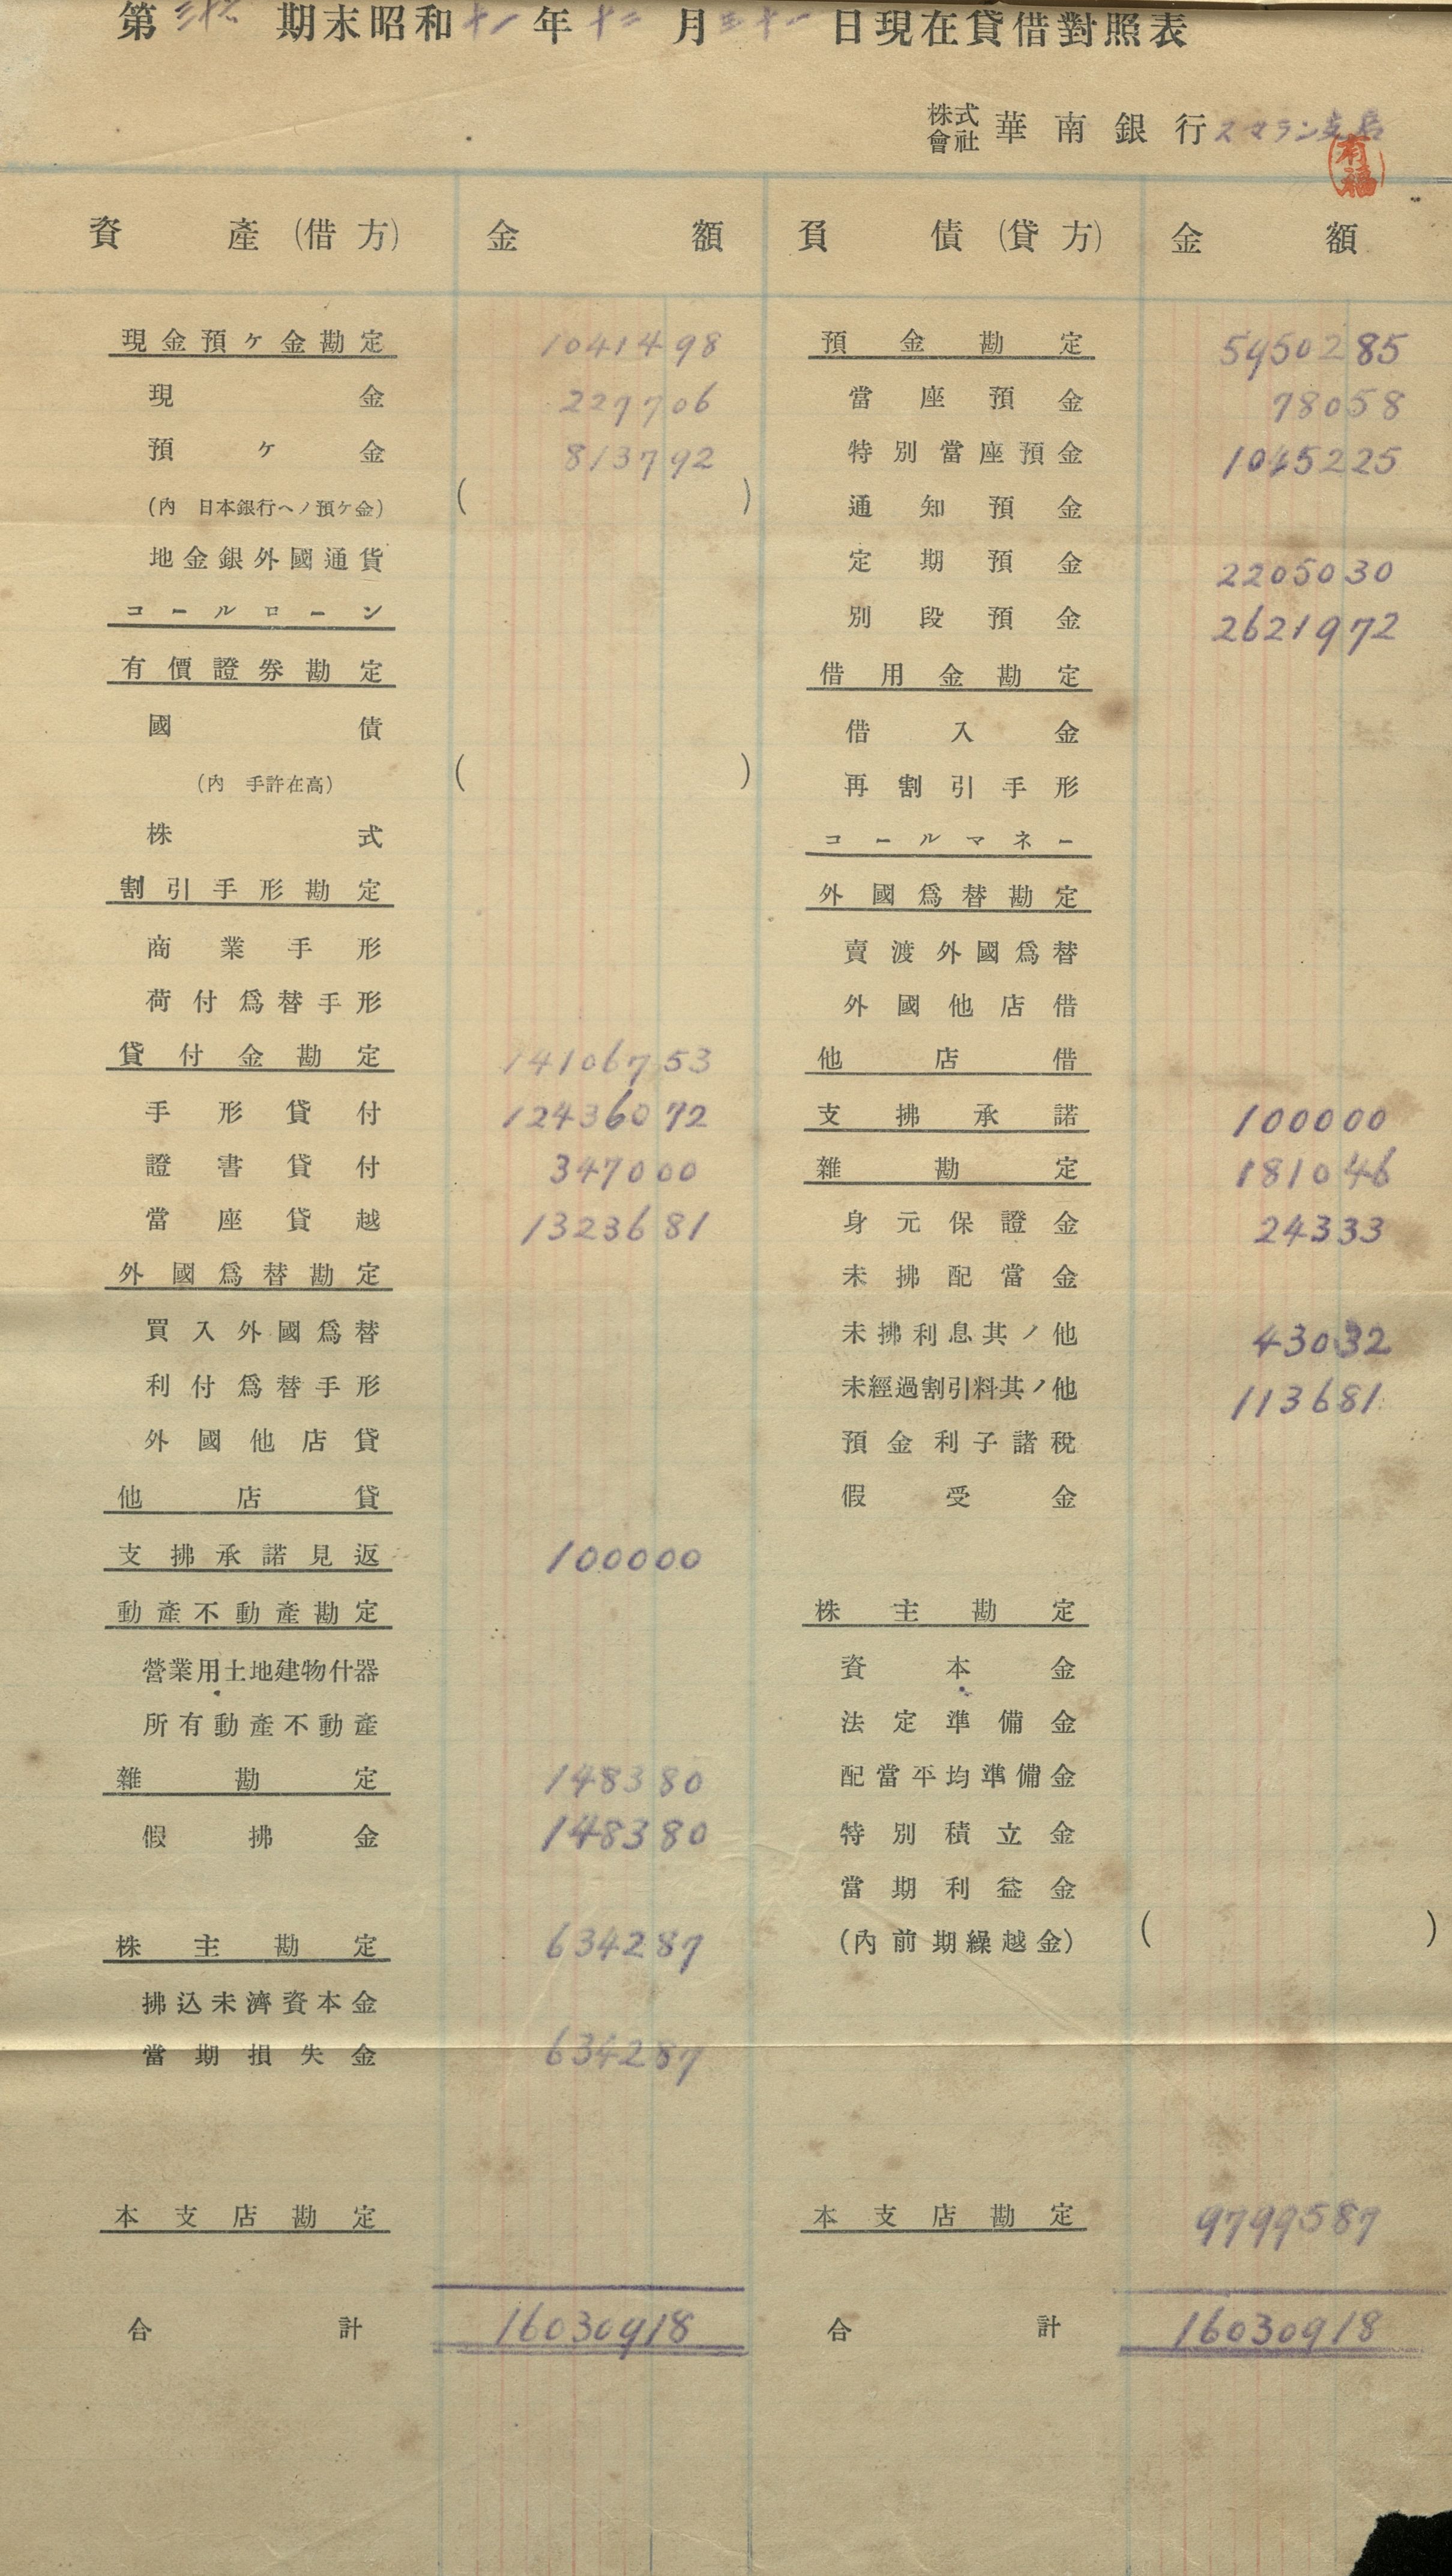 第 期末昭和十一年十二月三十一日現在貸借對照表
株式會社 華南銀行スマラン支店
有福
資產(借方) 金額
現金預ケ金勘定 1041498
現金 227706
預ケ金 813792
(內 日本銀行ヘノ預ケ金) ( )
地金銀外國通貨
コールローン
有價證券勘定
國債
(內 手許在高) ( )
株式
割引手形勘定
商業手形
荷付爲替手形
貸付金勘定 14106753
手形貸付 12436072
證書貸付 347000
當座貸越 1323681
外國爲替勘定
買入外國爲替
利付爲替手形
外國他店貸
他店貸
支拂承諾見返 100000
動產不動產勘定
營業用土地建物什器
所有動產不動產
雜勘定 148380
假拂金 148380
株主勘定 634287
拂込未濟資本金
當期損失金 634287
本支店勘定
合計 16030918
負債(貸方) 金額
預金勘定 5950285
當座預金 78058
特別當座預金 1045225
通知預金
定期預金 2205030
別段預金 2621972
借用金勘定
借入金
再割引手形
コールマネー
外國爲替勘定
賣渡外國爲替
外國他店借
他店借
支拂承諾 100000
雜勘定 181046
身元保證金 24333
未拂配當金
未拂利息其ノ他 43032
未經過割引料其ノ他 113681
預金利子諸稅
假受金
株主勘定
資本金
法定準備金
配當平均準備金
特別積立金
當期利益金
(內前期繰越金) ( )
本支店勘定 9799587
合計 16030918